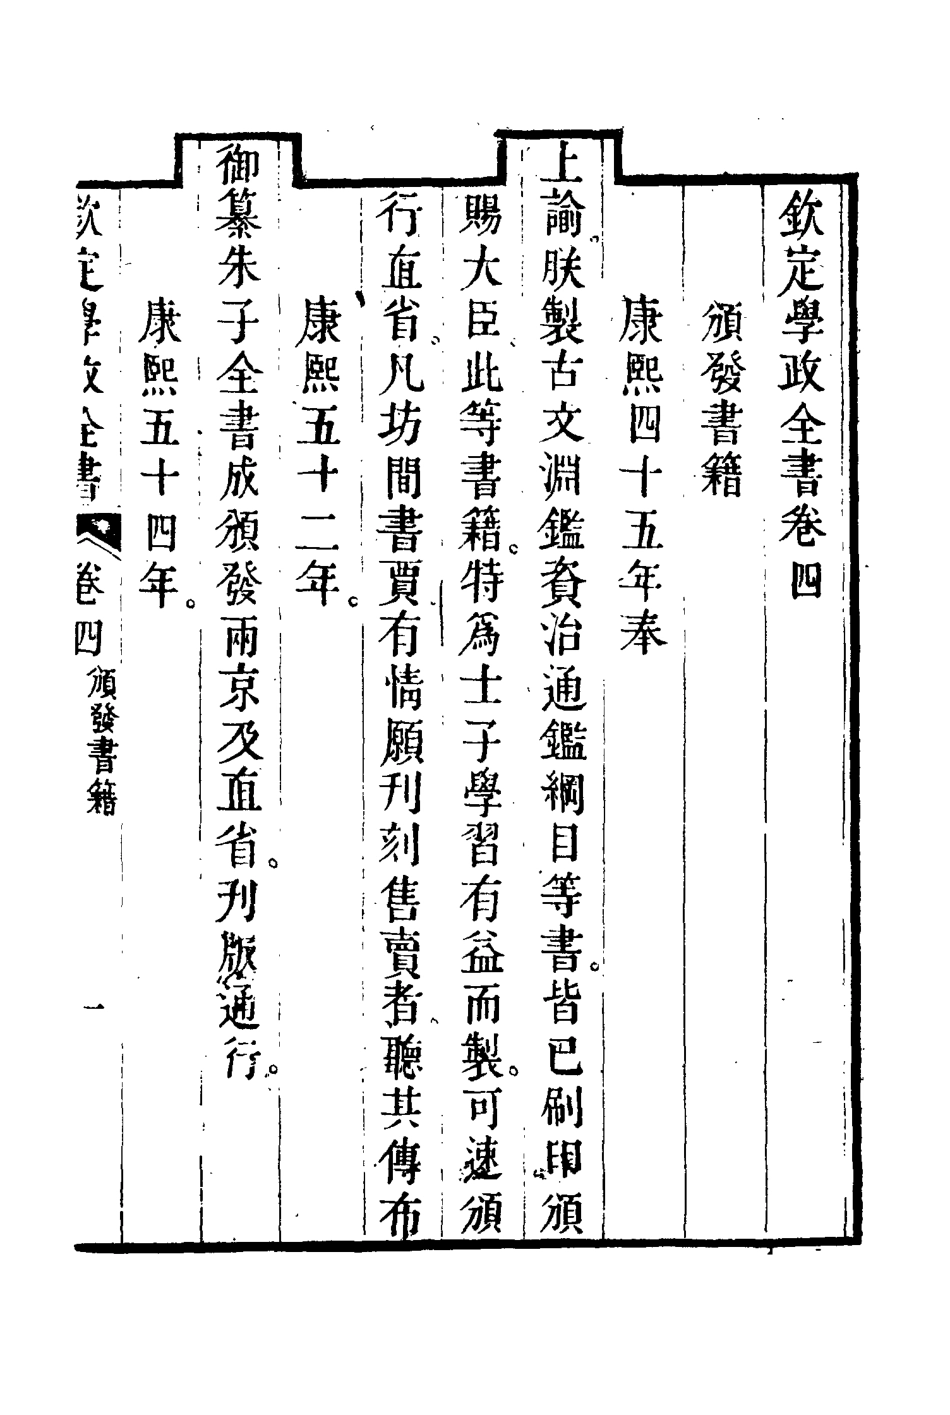 欽定學政全書卷四
頒發書籍
康熙四十五年奉
上諭朕製古文淵鑑資治通鑑綱目等書。皆已刷印頒
賜大臣、此等書籍。特爲士子學習有益而製。可速頒
行直省、凡坊間書賈有情願刊刻售賣者、聽其傳布
康熙五十二年。
御纂朱子全書成頒發兩京及直省。刋版通行。
康熙五十四年。
欽定學政全書 卷四 頒發書籍 一